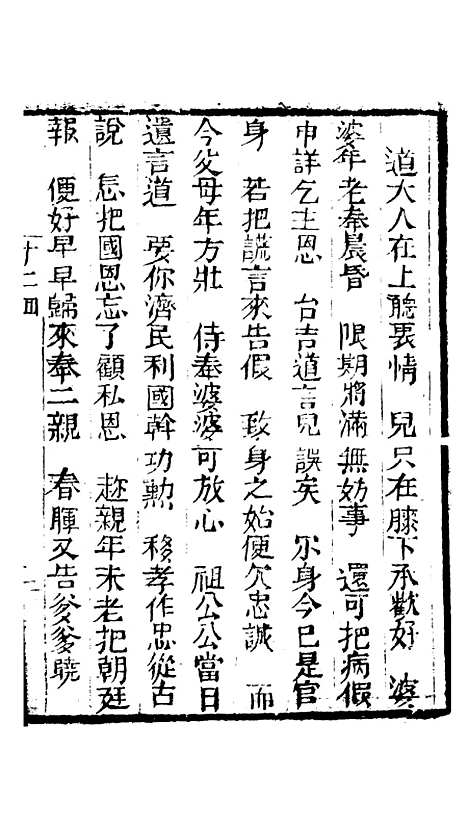 道大人在上聽衷情　兒只在膝下承歡好　婆
婆年老奉晨昏　限期將滿無妨事　還可把病假
申詳乞主恩　台吉道言兒誤矣　尔身今已是官
身　若把謊言來告假　致身之始便欠忠誠　而
今父母年方壯　侍奉婆婆可放心　祖公公當日
遺言道　要你濟民利國幹功勳　移孝作忠從古
說　怎把國恩忘了顧私恩　趁親年未老把朝廷
報　便好早早歸來奉二親　春暉又告爹爹曉
十二　四